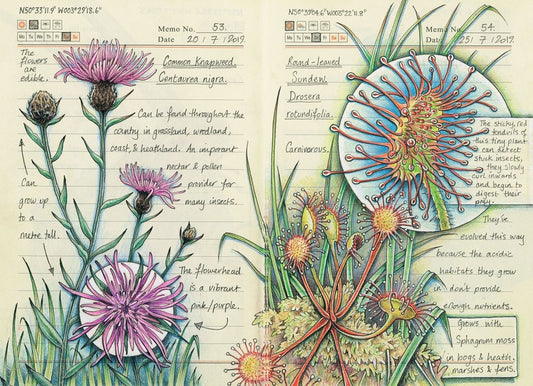 N50°33'11.9" W003°29'18.6"
Memo No. 53.
Mo Tu We Th Fr Sa Su
Date 20 / 7 / 2019.
The flowers
are
edible.
Common Knapweed.
Centaurea nigra.
Can be found throughout the
country in grassland, woodland,
coast, & heathland. An imporant
nectar & pollen
provider for
many insects.
Can
grow up
to a
metre tall.
The flowerhead
is a vibrant
pink/purple.
Memo No. 54.
Mo Tu We Th Fr Sa Su
Date 25 / 7 / 2019.
Round-leaved
Sundew.
Drosera
rotundifolia.
Carnivorous.
The sticky, red
tendrils of
this tiny plant
can detect
stuck insects,
they slowly
curl inwards
and begin to
digest their
prey.
They've
evolved this way
because the acidic
habitats they grow
in don't provide
enough nutrients.
Grows with
Sphagnum moss
in bogs & heath,
marshes & fens.